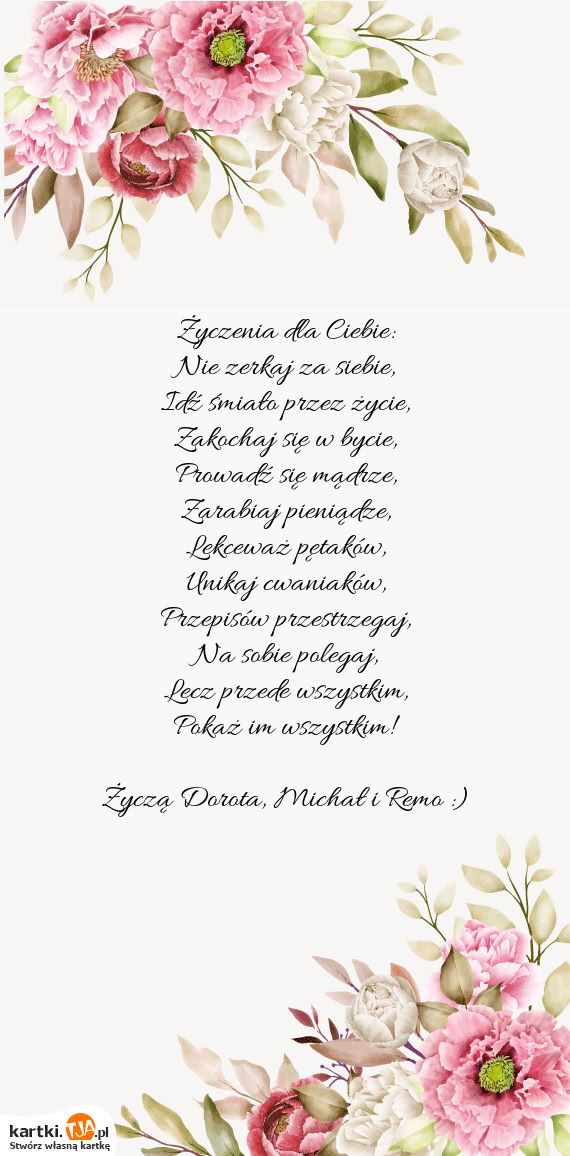 Życzenia dla Ciebie:
Nie zerkaj za siebie,
Idź śmiało przez życie,
Zakochaj się w bycie,
Prowadź się mądrze,
Zarabiaj pieniądze,
Lekceważ pętaków,
Unikaj cwaniaków,
Przepisów przestrzegaj,
Na sobie polegaj,
Lecz przede wszystkim,
Pokaż im wszystkim!
Życzą Dorota, Michał i Remo :)
kartki.TJA.pl
Stwórz własną kartkę